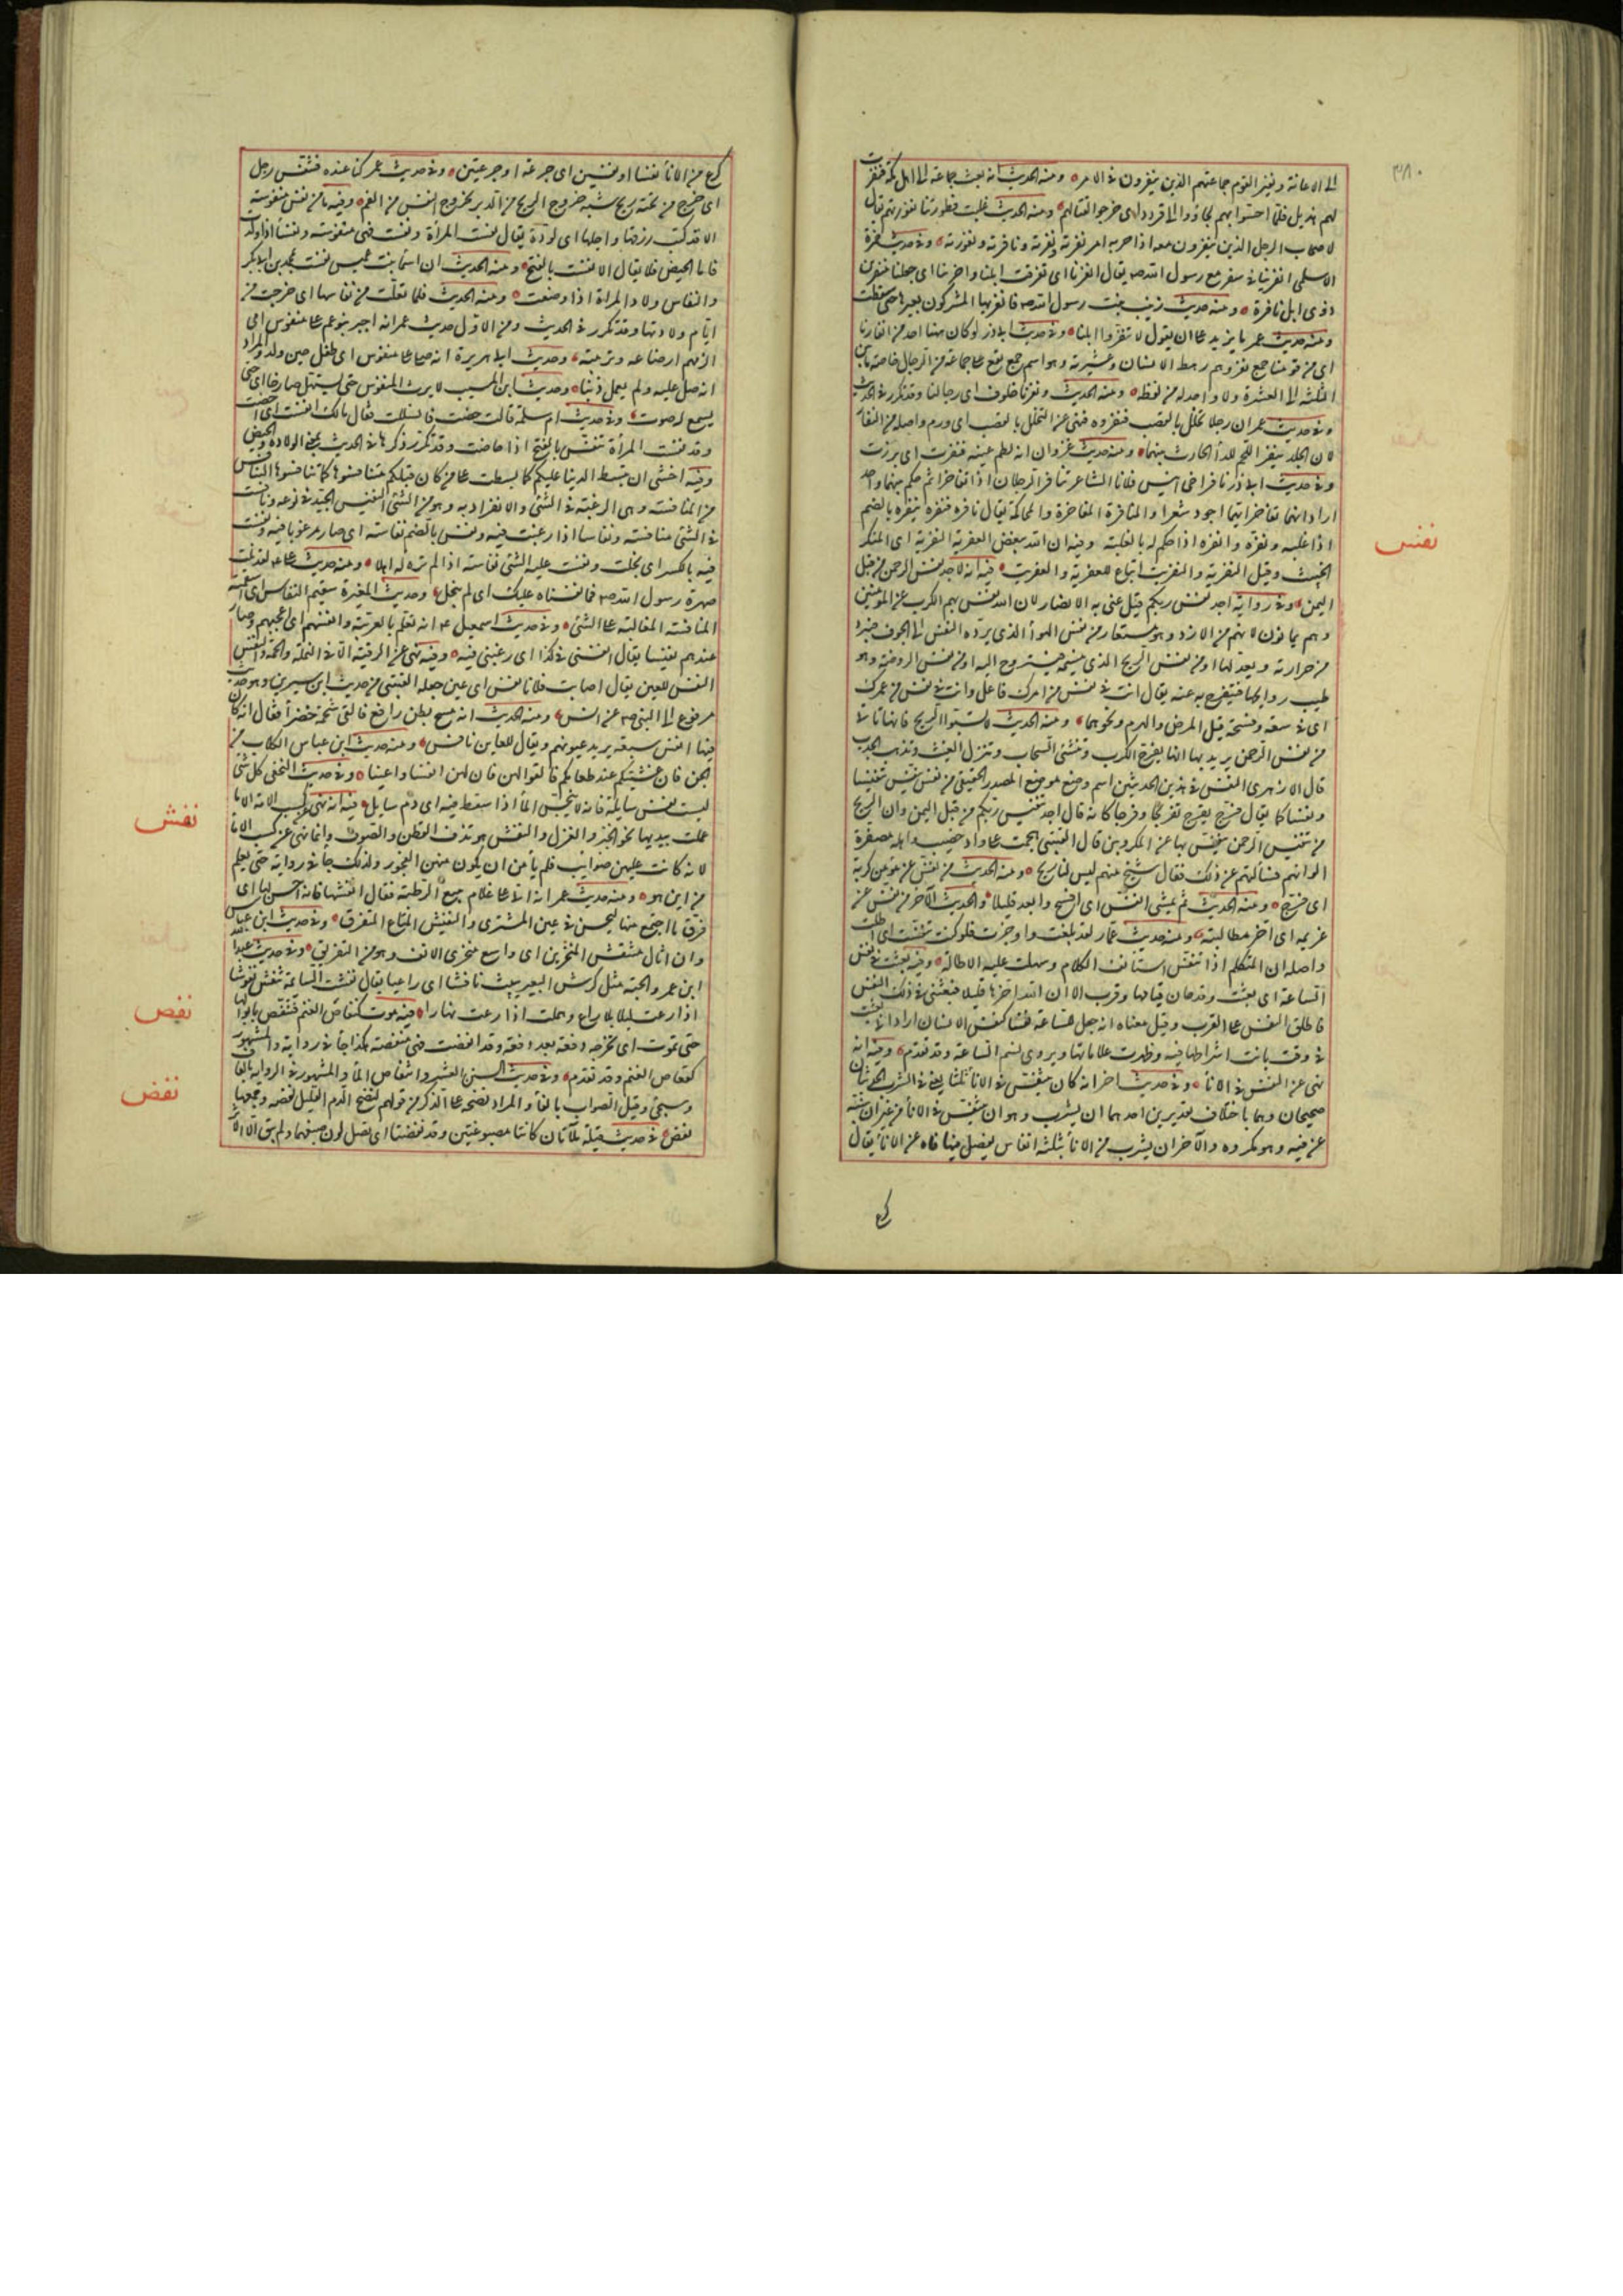 ٣٨٠
الى الاعانة ونفير القوم جماعتهم الذين ينفرون فى الامر ومنه الحديث انه بعث جماعة الى اهل مكة فنفرت
لهم هذيل فلما احسوا بهم لجاؤوا الى قردد اى خرجوا لقتالهم ومنه الحديث غلبت نفورتنا نفورتهم يقال
لاصحاب الرجل الذين ينفرون معه اذا حزبه امر نفرته ونفرته ونافرته ونفورته وفى حديث حمزة
الاسلمى انفر بنا فى سفر مع رسول الله صم يقال انفرنا اى تفرقت ابلنا وانفر بنا اى جعلنا منفرين
ذوى ابل نافرة ومنه حديث زينب بنت رسول الله صم فانفر بها المشركون بعيرها حتى سقطت
ومنه حديث عمر ما يزيد على ان يقول لا تنفروا ابلنا وفى حديث ابى ذر لو كان ههنا احد من انفارنا
اى من قومنا جمع نفر وهم رهط الانسان وعشيرته وهو اسم جمع يقع على جماعة من الرجال خاصة ما بين
الثلثة الى العشرة ولا واحد له من لفظه ومنه الحديث ونفرنا خلوف اى رجالنا وقد تكرر فى الحديث
وفى حديث عمر ان رجلا تخلل بالقصب فنفر فوه فنهى عن التخلل بالقصب اى ورم واصله من النفار
لان الجلد ينفر عن اللحم للداء الحادث بينهما ومنه حديث غزوان انه لطم عينه فنفرت اى ورمت
وفى حديث ابى ذر نافر اخى انيس فلانا الشاعر تنافر الرجلان اذا تفاخرا ثم حكم بينهما واحد
اراد انهما تفاخرا ايهما اجود شعرا والمنافرة المفاخرة والمحاكمة يقال نافره فنفره ينفره بالضم
اذا غلبه ونفره وانفره اذا حكم له بالغلبة وفيه ان الله يبغض العفرية النفرية اى المنكر
الخبيث وقيل النفرية والنفريت اتباع للعفرية والعفريت فيه انى لاجد نفس الرحمن من قبل
اليمن وفى رواية اجد نفس ربكم قيل عنى به الانصار لان الله نفس بهم الكرب عن المؤمنين
وهم يمانون لانهم من الازد وهو مستعار من نفس الهواء الذى يرده النفس الى الجوف فيبرد
من حرارته ويعدلها او من نفس الريح الذى يتنسمه فيستروح اليه او من نفس الروضة وهو
طيب روايحها فيتفرج به عنه يقال انت فى نفس من امرك فاعمل وانت فى نفس من عمرك
اى فى سعة وفسحة قبل المرض والهرم ونحوهما ومنه الحديث لا تسبوا الريح فانها
من نفس الرحمن يريد بها انها تفرج الكرب وتنشئ السحاب وتنزل الغيث وتذهب الجدب
قال الازهرى النفس فى هذين الحديثين اسم وضع موضع المصدر الحقيقى من نفس ينفس تنفيسا
ونفسا كما يقال فرج يفرج تفريجا وفرجا كانه قال اجد تنفيس ربكم من قبل اليمن وان الريح
من تنفيس الرحمن ينفس بها عن المكروبين قال العتبى هجمت على واد خصيب واهله مصفرة
الوانهم فسالتهم عن ذلك فقال شيخ منهم ليس لنا ريح ومنه الحديث من نفس عن مؤمن كربة
اى فرج ومنه الحديث ثم يمشى انفس اى افسح وابعد قليلا والحديث الآخر من نفس عن
غريمه اى اخر مطالبته ومنه حديث عمار لقد ابلغت واوجزت فلو كنت تنفست اى اطلت
واصله ان المتكلم اذا تنفس استانف الكلام وسهلت عليه الاطالة وفيه بعثت فى نفس
الساعة اى بعثت وقد حان قيامها وقرب الا ان الله اخرها قليلا فبعثنى فى ذلك النفس
فاطلق النفس على القرب وقيل معناه انه جعل للساعة نفسا كنفس الانسان اراد انى بعثت
فى وقت بانت اشراطها فيه وظهرت علاماتها ويروى فى نسم الساعة وقد تقدم وفيه انه
نهى عن النفس فى الاناء وفى حديث اخر انه كان يتنفس فى الاناء ثلثا يعنى فى الشرب الحديثان
صحيحان وهما باختلاف تقديرين احدهما ان يشرب وهو ان يتنفس فى الاناء من غير ان يبينه
عن فيه وهو مكروه والآخر ان يشرب من الاناء بثلثة انفاس يفصل فيها فاه عن الاناء يقال
نفس
كرع
كرع من الاناء نفسا او نفسين اى جرعة او جرعتين وفى حديث عمر كنا عنده فتنفس رجل
اى خرج من تحته ريح شبه خروج الريح من الدبر بخروج النفس من الفم وفيه ما من نفس منفوسة
الا قد كتب رزقها واجلها اى مولودة يقال نفست المراة ونفست فهى منفوسة ونفساء اذا ولدت
فاما الحيض فلا يقال الا نفست بالفتح ومنه الحديث ان اسماء بنت عميس نفست بمحمد بن ابى بكر
والنفاس ولاد المراة اذا وضعت ومنه الحديث فلما تعلت من نفاسها اى خرجت من
ايام ولادتها وقد تكرر فى الحديث ومن الاول حديث عمر انه اجبر بنى عم على منفوس اى
الزمهم ارضاعه وتربيته وحديث ابى هريرة انه صلى على منفوس اى طفل حين ولد والمراد
انه صلى عليه ولم يعمل ذنبا وحديث ابن المسيب لا يرث المنفوس حتى يستهل صارخا اى حتى
يسمع له صوت وفى حديث ام سلمة قالت حضت فانسللت فقال مالك انفست اى احضت
وقد نفست المرأة تنفس بالفتح اذا حاضت وقد تكرر ذكرها فى الحديث بمعنى الولادة والحيض
وفيه اخشى ان تبسط الدنيا عليكم كما بسطت على من كان قبلكم فتنافسوها كما تنافسوها التنافس
من المنافسة وهى الرغبة فى الشئ والانفراد به وهو من الشئ النفيس الجيد فى نوعه ونافست
فى الشئ منافسة ونفاسا اذا رغبت فيه ونفس بالضم نفاسة اى صار مرغوبا فيه ونفست
فيه بالكسر اى بخلت ونفست عليه الشئ نفاسة اذا لم تره له اهلا ومنه حديث على لقد نلت
صهرة رسول الله صم فما نفسناه عليك اى لم نبخل وحديث المغيرة سقيم النفاس اى اسقمته
المنافسة المغالبة على الشئ وفى حديث اسمعيل عم انه تعلم بالعربية وانفسهم اى اعجبهم وصار
عندهم نفيسا يقال انفسنى فى كذا اى رغبنى فيه وفيه نهى عن الرقية الا فى النملة والحمة والنفس
النفس العين يقال اصابت فلانا نفس اى عين جعله القتبى من حديث ابن سيرين وهو حديث
مرفوع الى النبى صم عن انس ومنه الحديث انه مسح بطن رافع فالقى شحمة خضراء فقال انه كان
فيها انفس سبعة يريد عيونهم ويقال للعاين نافس ومنه حديث ابن عباس الكلاب من
الجن فان غشيتكم عند طعامكم فالقوا لهن فان لهن انفسا واعينا وفى حديث النخعى كل شئ
ليست له نفس سايلة فانه لا ينجس الماء اذا سقط فيه اى دم سايل فيه انه نهى عن كسب الامة الا ما
عملت بيديها نحو الخبز والغزل والنفش هو ندف القطن والصوف وانما نهى عن كسب الاماء
لانه كانت عليهن ضرايب فلم يامن ان يكون منهن الفجور ولذلك جاء فى رواية حتى يعلم
من اين هو ومنه حديث عمر انه اتى على غلام يبيع الرطبة فقال انفشها فانه احسن لها اى
فرق ما اجتمع منها ليحسن فى عين المشترى والنفيش المتاع المتفرق وفى حديث ابن عباس
وان اتاك منتفش المنخرين اى واسع منخرى الانف وهو من التفريق وفى حديث عبد الله
ابن عمر والحبة مثل كرش البعير يبيت نافشا اى راعيا يقال نفشت السايمة تنفش نفوشا
اذا رعت ليلا بلا راع وهملت اذا رعت نهارا فيه موت كنفاص الغنم فتنفص بابوالها
حتى تموت اى تخرجه دفعة بعد دفعة وقد انفصت فهى منفصة هكذا جاء فى رواية والمشهور
كقعاص الغنم وقد تقدم وفى حديث السنن العشر وانتفاص الماء والمشهور فى الرواية بالقاف
وسيجئ وقيل الصواب بالفاء والمراد نضحه على الذكر من قولهم لنضح الدم القليل نفصه وجمعها
نفص فى حديث قيلة ملآتان كانتا مصبوغتين وقد نفضتا اى نصل لون صبغهما ولم يبق الا الاثر
نفش
نفص
نفض